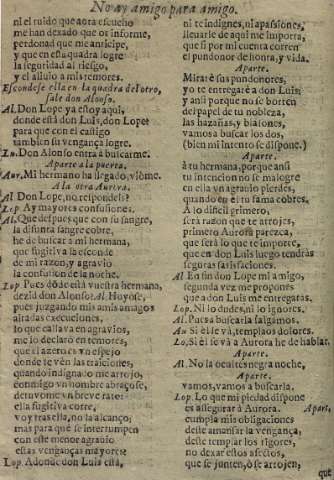 No ay amigo para amigo.
ni el ruido que aora escucho
me han dexado que os informe,
perdonad que me anticipe,
y que en essa quadra logre
la seguridad al riesgo,
y el aliuio a mis temores.
Escondese ella en la quadra del otro,
sale don Alonso.
Al. Don Lope ya estoy aqui,
donde está don Luis, don Lope?
para que con el castigo
tambien su vengança logre.
Lu. Don Alonso entra a buscarme.
Aparte a la puerta.
Aur. Mi hermano ha llegado, vióme.
A la otra Aurora.
Al. Don Lope, no respondeis?
Lop. Ay mayores confusiones.
Al. Que despues que con su sangre,
la difunta sangre cobre,
he de buscar a mi hermana,
que fugitiua se esconde
de mi razon, y agrauio
la confusion de la noche.
Lop. Pues dóde está vuestra hermana,
dezid don Alonso? Al. Huyóse,
pues juzgando mis amis amagos
altadas execuciones,
lo que callaua en agrauios,
me lo declaró en temores,
que el azero es vn espejo
donde se vén las traiciones,
quando indignado me arrojo,
conmigo vn hombre abraçose,
detuvome vn breve rato:
ella fugitiua corre,
voy tras ella, no la alcanço,
mas para que se interrumpen
con este menor agrauio
estas venganças mayores?
Lop. Adonde don Luis está,
ni te indignes, ni apassiones,
lleuarle de aqui me importa,
que si por mi cuenta corren
el pundonor de honra, y vida.
Aparte.
Miraré sus pundonores,
yo te entregaré a don Luis,
y ansi porque no se borren
del papel de tu nobleza,
las hazañas, y blasones,
vamos a buscar los dos,
(bien mi intento se dispone.)
Aparte.
á tu hermana, porque ansi
tu intencion no se malogre
en ella vn agrauio pierdes,
quando en él tu fama cobres.
A lo dificil primero
será razon que te arrojes,
primero Aurora parezca,
que será lo que te importe,
que en don Luis luego tendrás
seguras satisfaciones.
Al. En fin don Lope mi amigo,
segunda vez me propones
que a don Luis me entregaras.
Lop. Ni lo dudes, ni lo ignores.
Al. Pues a buscarla salgamos.
Au. Si él se vá, templaos dolores.
Lo. Si él se vá a Aurora he de hablar.
Aparte.
Al. No la oculte negra noche,
Aparte.
vamos, vamos a buscarla.
Lop. Lo que mi piedad dispone
es assegurar á Aurora. Apart.
cumpla mis obligaciones
deste amansar la vengança,
deste templar los rigores,
no dexar estos afectos,
que se junten, ó se arrojen;
que